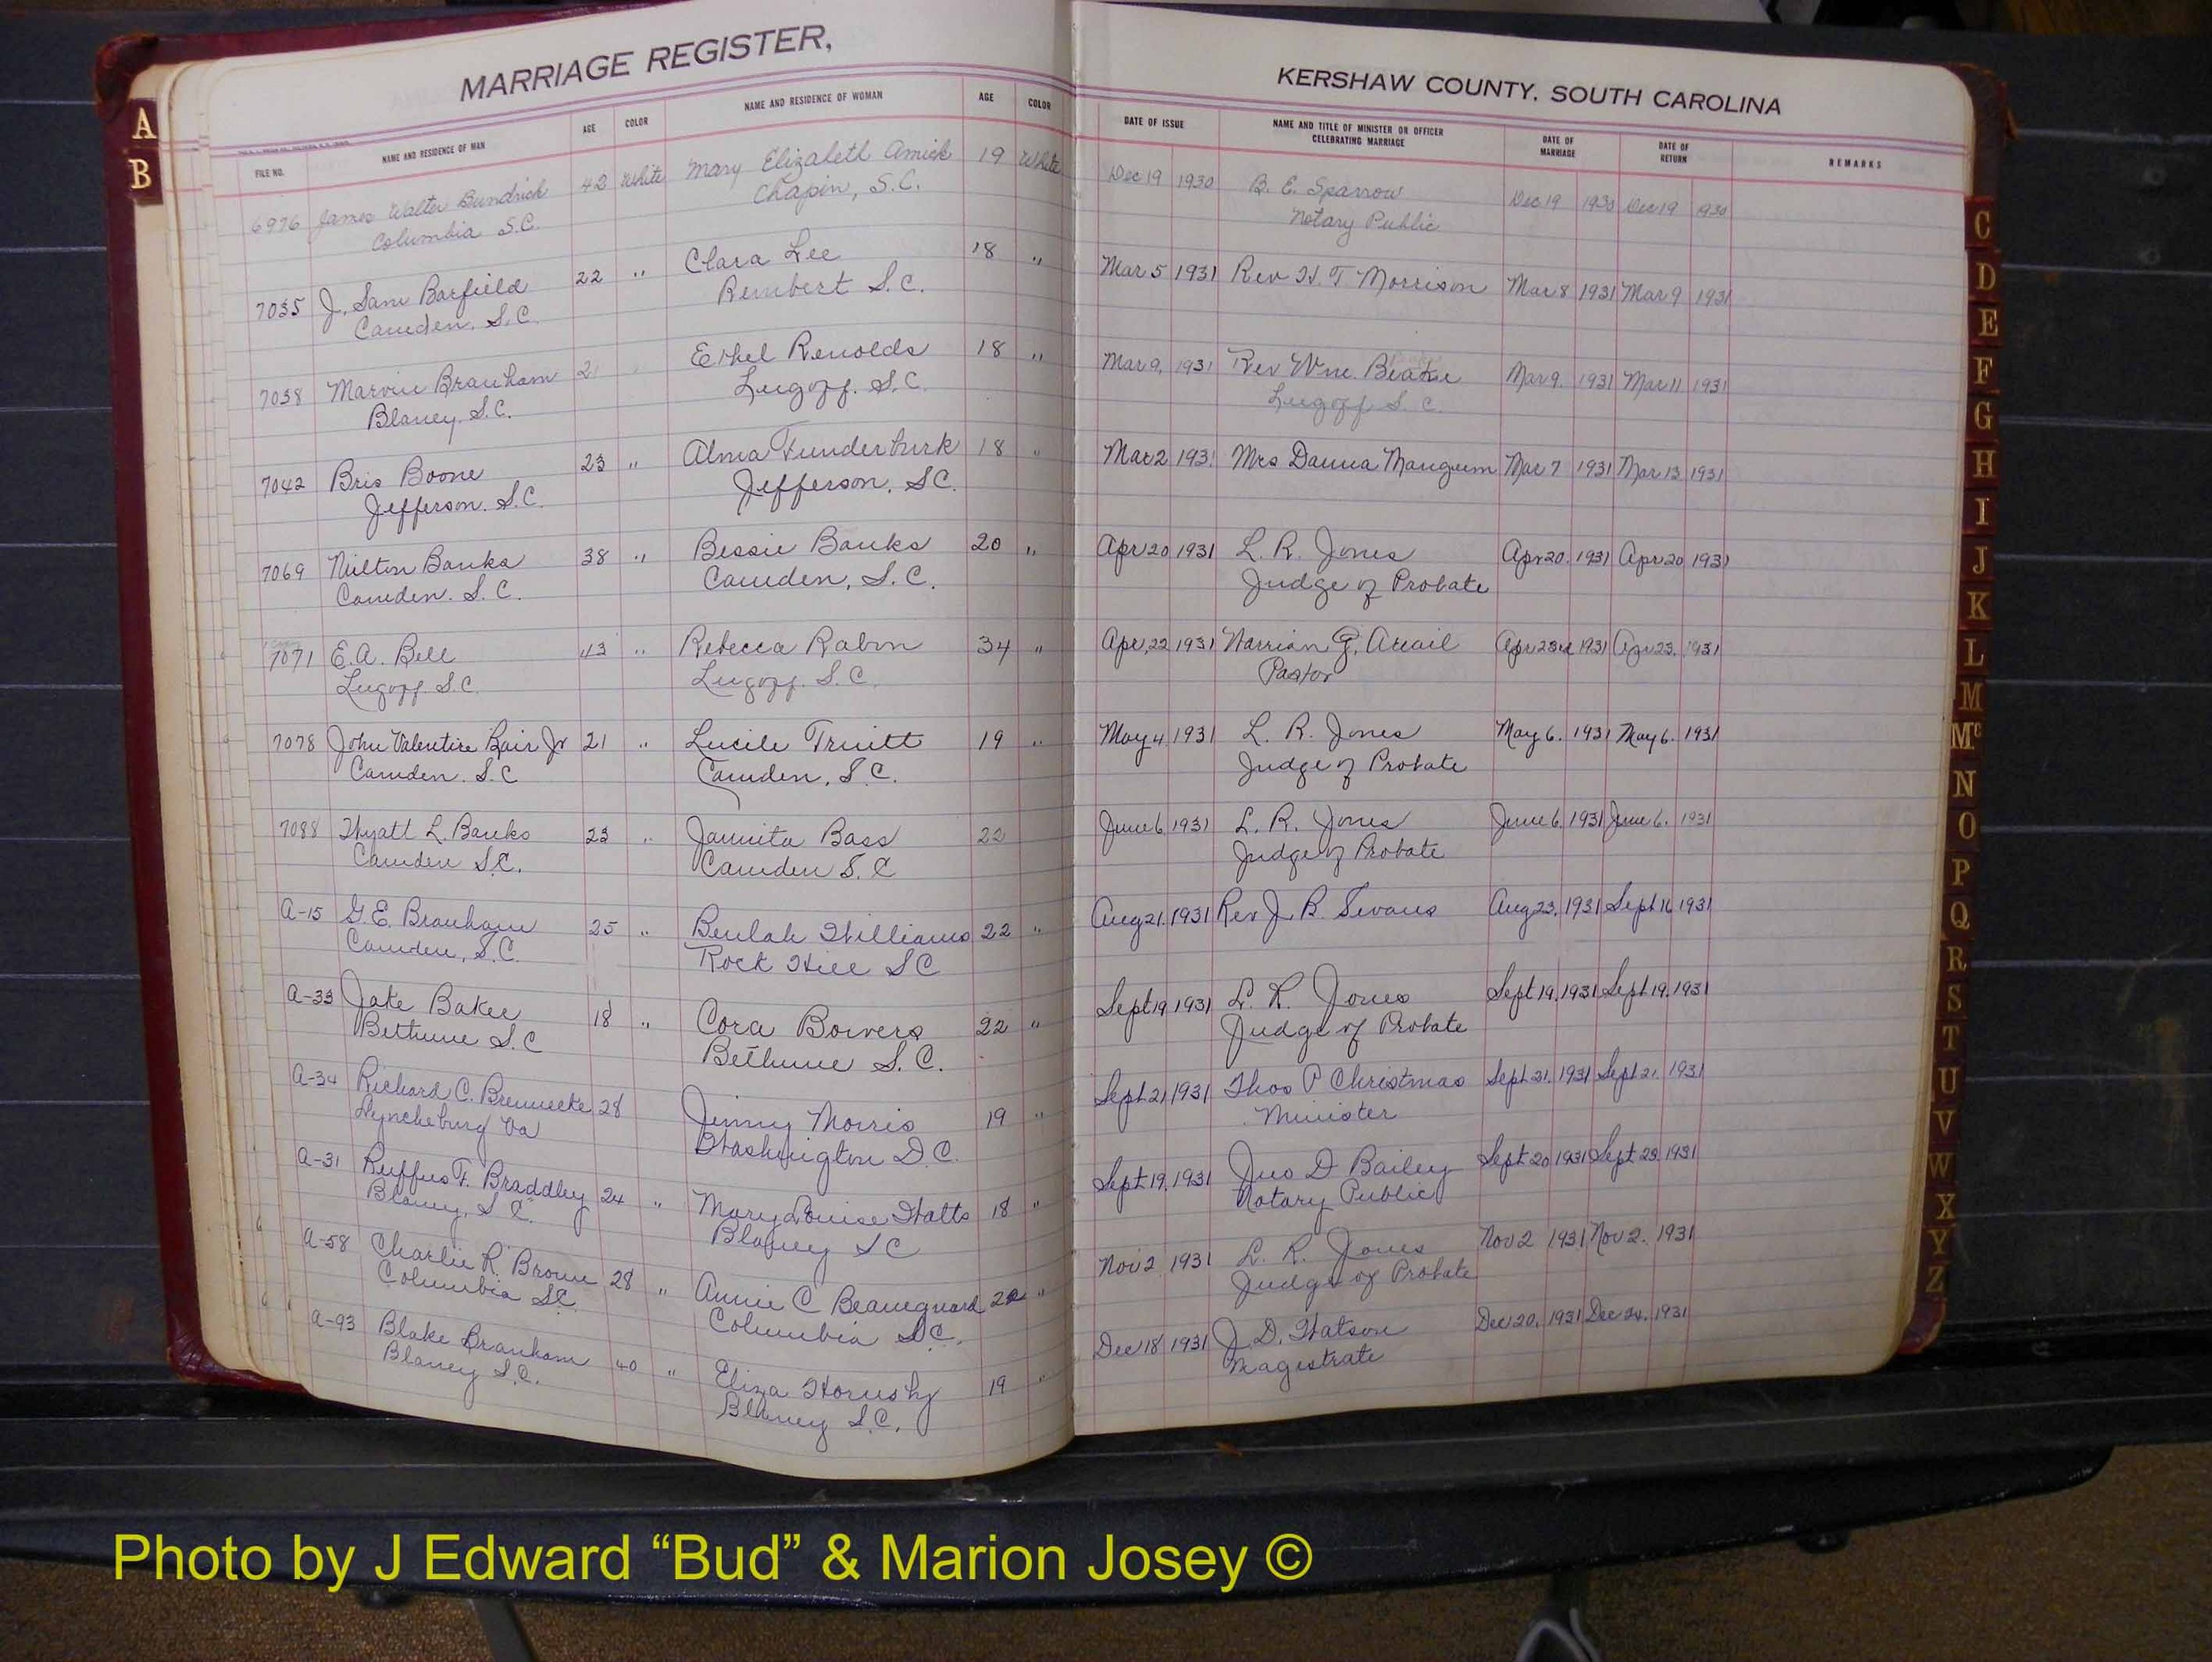 MARRIAGE REGISTER,
FILE NO. NAME AND RESIDENCE OF MAN AGE COLOR NAME AND RESIDENCE OF WOMAN AGE COLOR
6976 James Walter Bundrick 42 White Mary Elizabeth Amick 19 White
Columbia S.C. Chapin, S.C.
7035 J. Sam Barfield 22 " Clara Lee 18 "
Camden, S.C. Rembert S.C.
7038 Marvin Branham 21 Ethel Renolds 18 "
Blaney, S.C. Lugoff. S.C.
7042 Bris Boone 23 " Alma Funderburk 18 "
Jefferson. S.C. Jefferson, SC.
7069 Milton Banks 38 " Bessie Banks 20 "
Camden. S.C. Camden, S.C.
7071 E.A. Bell 43 " Rebecca Rabon 34 "
Lugoff S.C. Lugoff. S.C.
7078 John Valentine Bair Jr 21 " Lucile Truitt 19 "
Camden. S.C Camden, S.C.
7088 Wyatt L. Banks 23 " Jaunita Bass 22
Camden S.C. Camden S.C
A-15 G.E. Branham 25 " Beulah Williams 22 "
Camden, S.C. Rock Hill SC
A-33 Jake Baker 18 " Cora Bowers 22 "
Bethune S.C Bethune S.C.
A-34 Richard C. Brennecke 28 Jinny Morris 19 "
Lynchburg Va Washington D.C.
A-31 Ruffus F. Braddley 24 " Mary Louise Watts 18 "
Blaney, S.C. Blaney SC
A-58 Charlie R. Brown 28 " Annie C Beaureguard "
Columbia SC Columbia S.C.
A-93 Blake Branham 40 " Eliza Hornsby 19 "
Blaney S.C. Blaney S.C.
KERSHAW COUNTY, SOUTH CAROLINA
DATE OF ISSUE NAME AND TITLE OF MINISTER OR OFFICER CELEBRATING MARRIAGE DATE OF MARRIAGE DATE OF RETURN REMARKS
Dec 19 1930 B. E. Sparrow Dec 19 1930 Dec 19 1930
Notary Public
Mar 5 1931 Rev H. T Morrison Mar 8 1931 Mar 9 1931
Mar 9, 1931 Rev Wm. Mar 9. 1931 Mar 11 1931
Lugoff S. C.
Mar 2 1931 Mrs Danna Mangum Mar 7 1931 Mar 13 1931
Apr 20 1931 L. R. Jones Apr 20. 1931 Apr 20 1931
Judge of Probate
Apr. 22 1931 G. Apr 23rd 1931 Apr 23. 1931
Pastor
May 4 1931 L. R. Jones May 6. 1931 May 6. 1931
Judge of Probate
June 6 1931 L. R. Jones June 6 1931 June 6. 1931
Judge of Probate
Aug 21. 1931 Rev J. B. Swans Aug 23, 1931 Sept 16 1931
Sept 19 1931 L. R. Jones Sept 19. 1931 Sept 19. 1931
Judge of Probate
Sept 21 1931 Thos P Christmas Sept 21. 1931 Sept 21. 1931
Minister
Sept 19. 1931 Jno D Bailey Sept 20 1931 Sept 23. 1931
Notary Public
Nov 2 1931 L. R. Jones Nov 2 1931 Nov 2. 1931
Judge of Probate
Dec 18 1931 J. D. Watson Dec 20. 1931 Dec 24. 1931
Magistrate
A
B
C
D
E
F
G
H
I
J
K
L
M
Mc
N
O
P
Q
R
S
T
U
V
W
X
Y
Z
Photo by J Edward “Bud” & Marion Josey ©